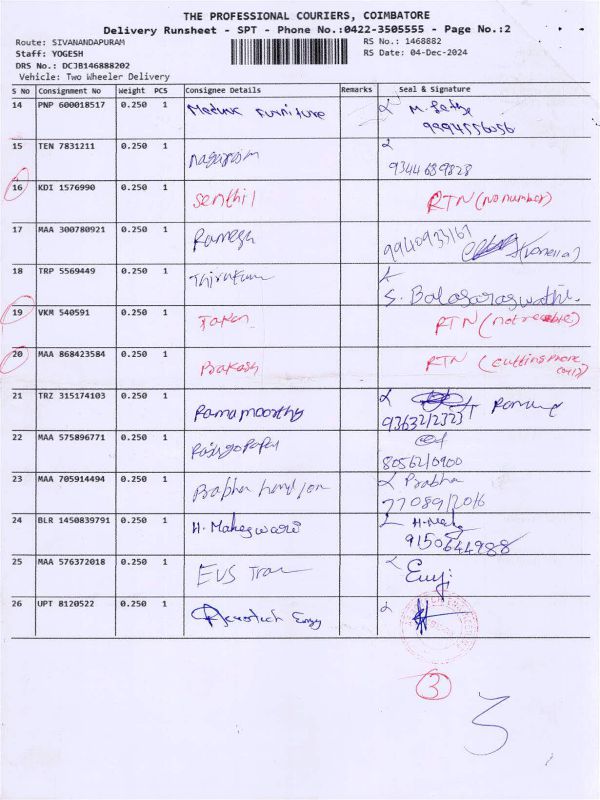 THE PROFESSIONAL COURIERS, COIMBATORE
Delivery Runsheet - SPT - Phone No.:0422-3505555 - Page No.:2
Route: SIVANANDAPURAM
Staff: YOGESH
DRS No.: DCJB146888202
Vehicle: Two Wheeler Delivery
RS No.: 1468882
RS Date: 04-Dec-2024
S No Consignment No Weight PCS Consignee Details Remarks Seal & Signature
14 PNP 600018517 0.250 1 Furniture
9994556056
15 TEN 7831211 0.250 1
9344689828
16 KDI 1576990 0.250 1 Senthil RTN (no number)
17 MAA 300780921 0.250 1 Ramesh 9940933167
18 TRP 5569449 0.250 1 S. Balasaraswathi
19 VKM 540591 0.250 1 RTN
20 MAA 868423584 0.250 1 Prakash RTN (cutting phone
21 TRZ 315174103 0.250 1 Ramamoorthy
9363212323
22 MAA 575896771 0.250 1 Rajagopal
8056210900
23 MAA 705914494 0.250 1 Prabha Prabha
7708912016
24 BLR 1450839791 0.250 1 H. Maheswari
9150644988
25 MAA 576372018 0.250 1 EVS
26 UPT 8120522 0.250 1 Aerotech Engg
3
3